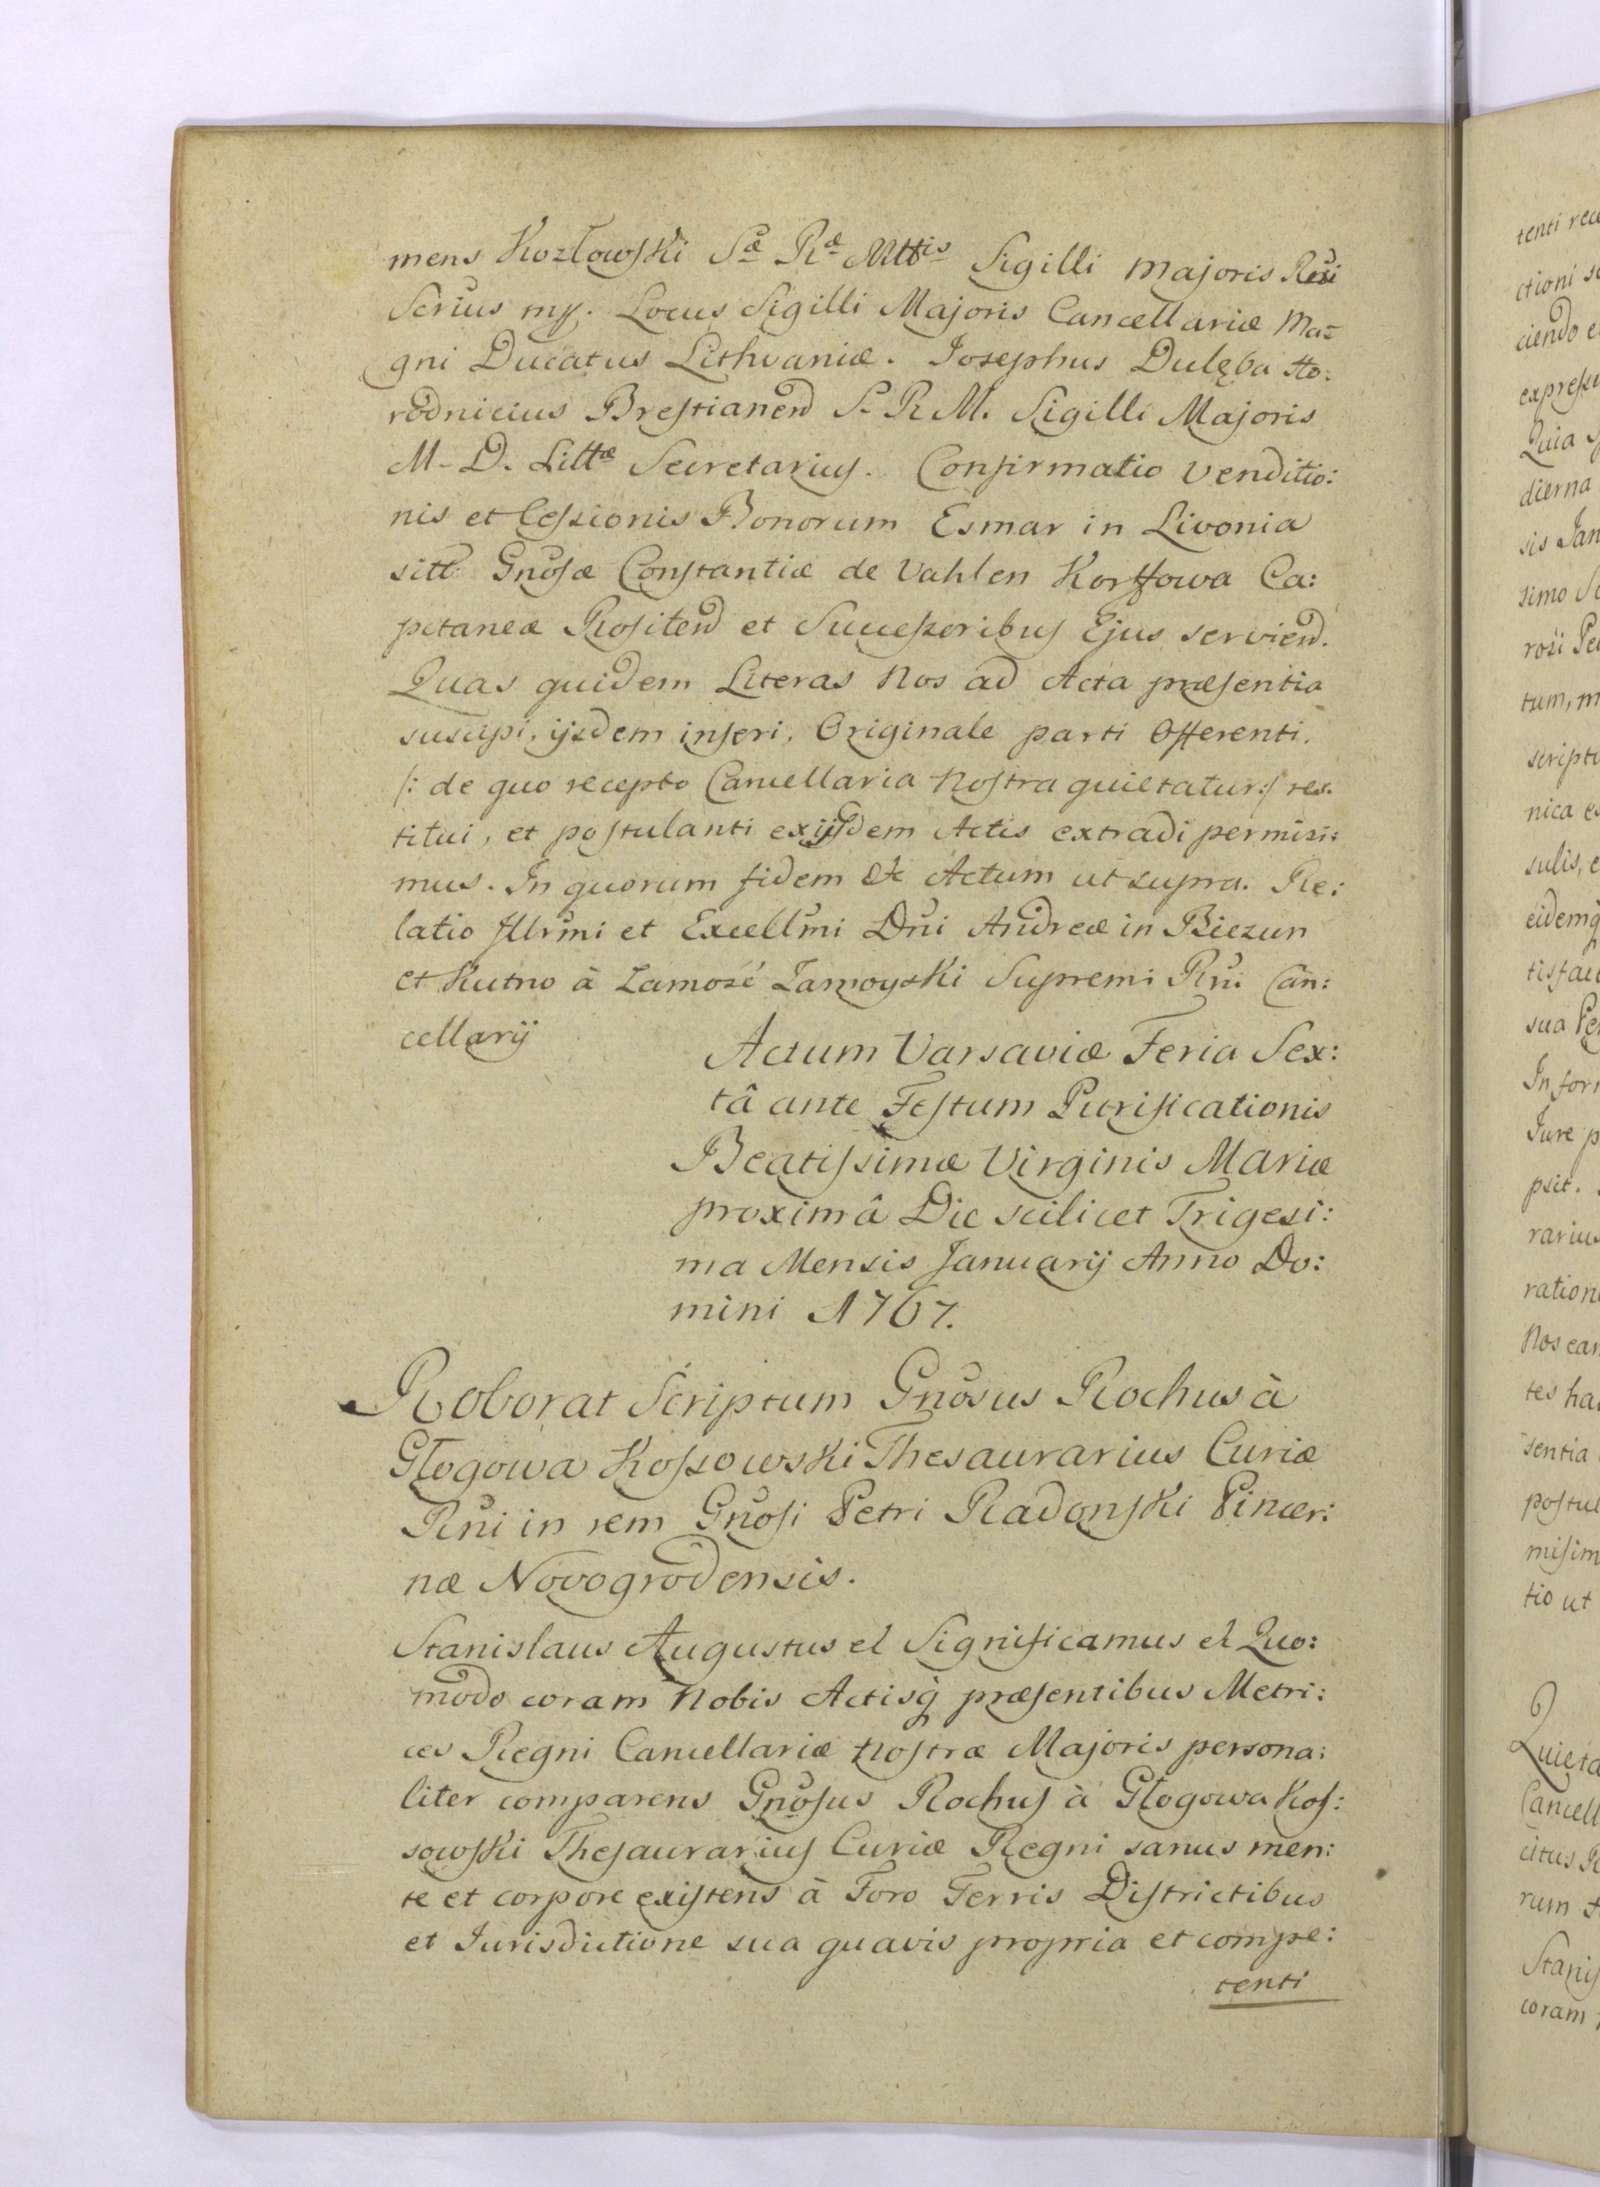 mens Kozłowski Sæ Ræ Mttis Sigilli Majoris Reni
Serius mp. Locus Sigilli Majoris Cancellariæ Ma=
gni Ducatus Lithvaniæ. Josephus Dulęba Ho:
rodnicius Brestianen S. R. M. Sigilli Majoris
M. D. Littæ Secretarius. Confirmatio Venditio:
nis et Cessionis Bonorum Esmar in Livonia
sitt. Gnosæ Constantiæ de Vahlen Korffowa Ca:
pitaneæ Rositen et Successoribus Ejus servien.
Quas quidem Literas Nos ad Acta præsentia
suscipi, ijsdem inseri, Originale parti Offerenti.
/: de quo recepto Cancellaria Nostra quietatur :/ res:
titui, et postulanti ex ijsdem Actis extradi permisi:
mus. In quorum fidem &c Actum ut supra. Re:
latio Illrmi et Excellmi Dni Andreæ in Biezun
et Kutno à Zamość Zamoyski Supremi Rni Can:
cellarij
Actum Varsaviæ Feria Sex:
tâ ante Festum Purificationis
Beatissimæ Virginis Mariæ
proximâ Die scilicet Trigesi:
ma Mensis Januarij Anno Do:
mini 1767.
Roborat Scriptum Gnosus Rochus à
Głogowa Kossowski Thesaurarius Curiæ
Rni in rem Gnosi Petri Radonski Pincer:
næ Novogrodensis.
Stanislaus Augustus et Significamus et Quo:
modo coram Nobis Actisq præsentibus Metri:
ces Regni Cancellariæ Nostræ Majoris persona:
liter comparens Gnosus Rochus à Głogowa Kos:
sowski Thesaurarius Curiæ Regni sanus men:
te et corpore existens à Foro Terris Districtibus
et Jurisdictione sua quavis propria et compe:
tenti